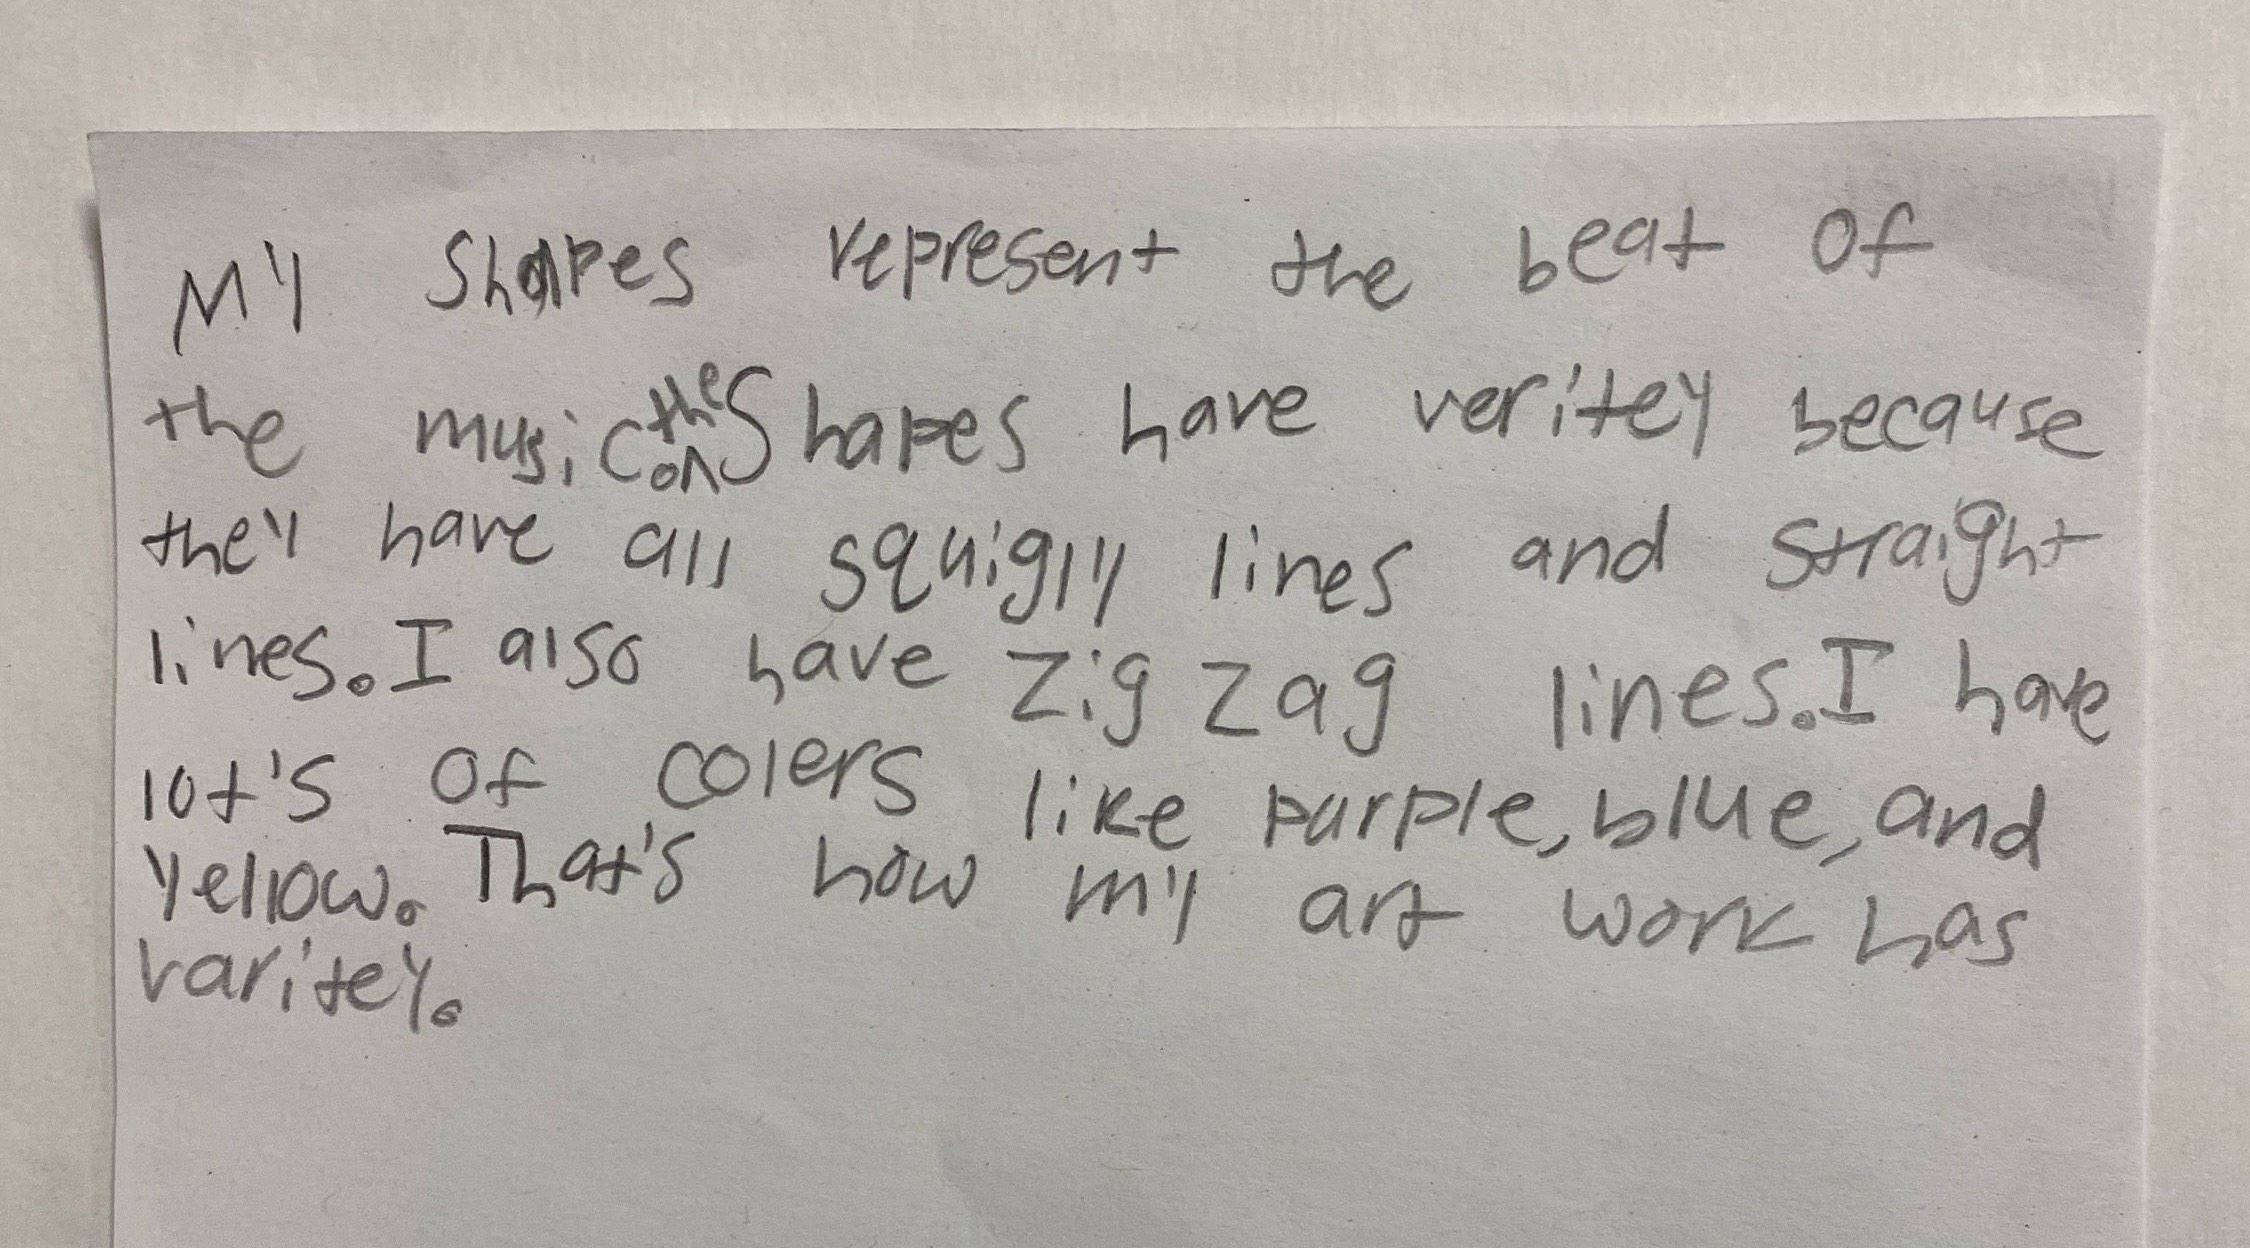 My shapes represent the beat of
the music. the shapes have veritey because
they have all squigly lines and straight
lines. I also have zig zag lines. I have
lot's of colers like purple, blue, and
Yellow. That's how my art work has
varitey.